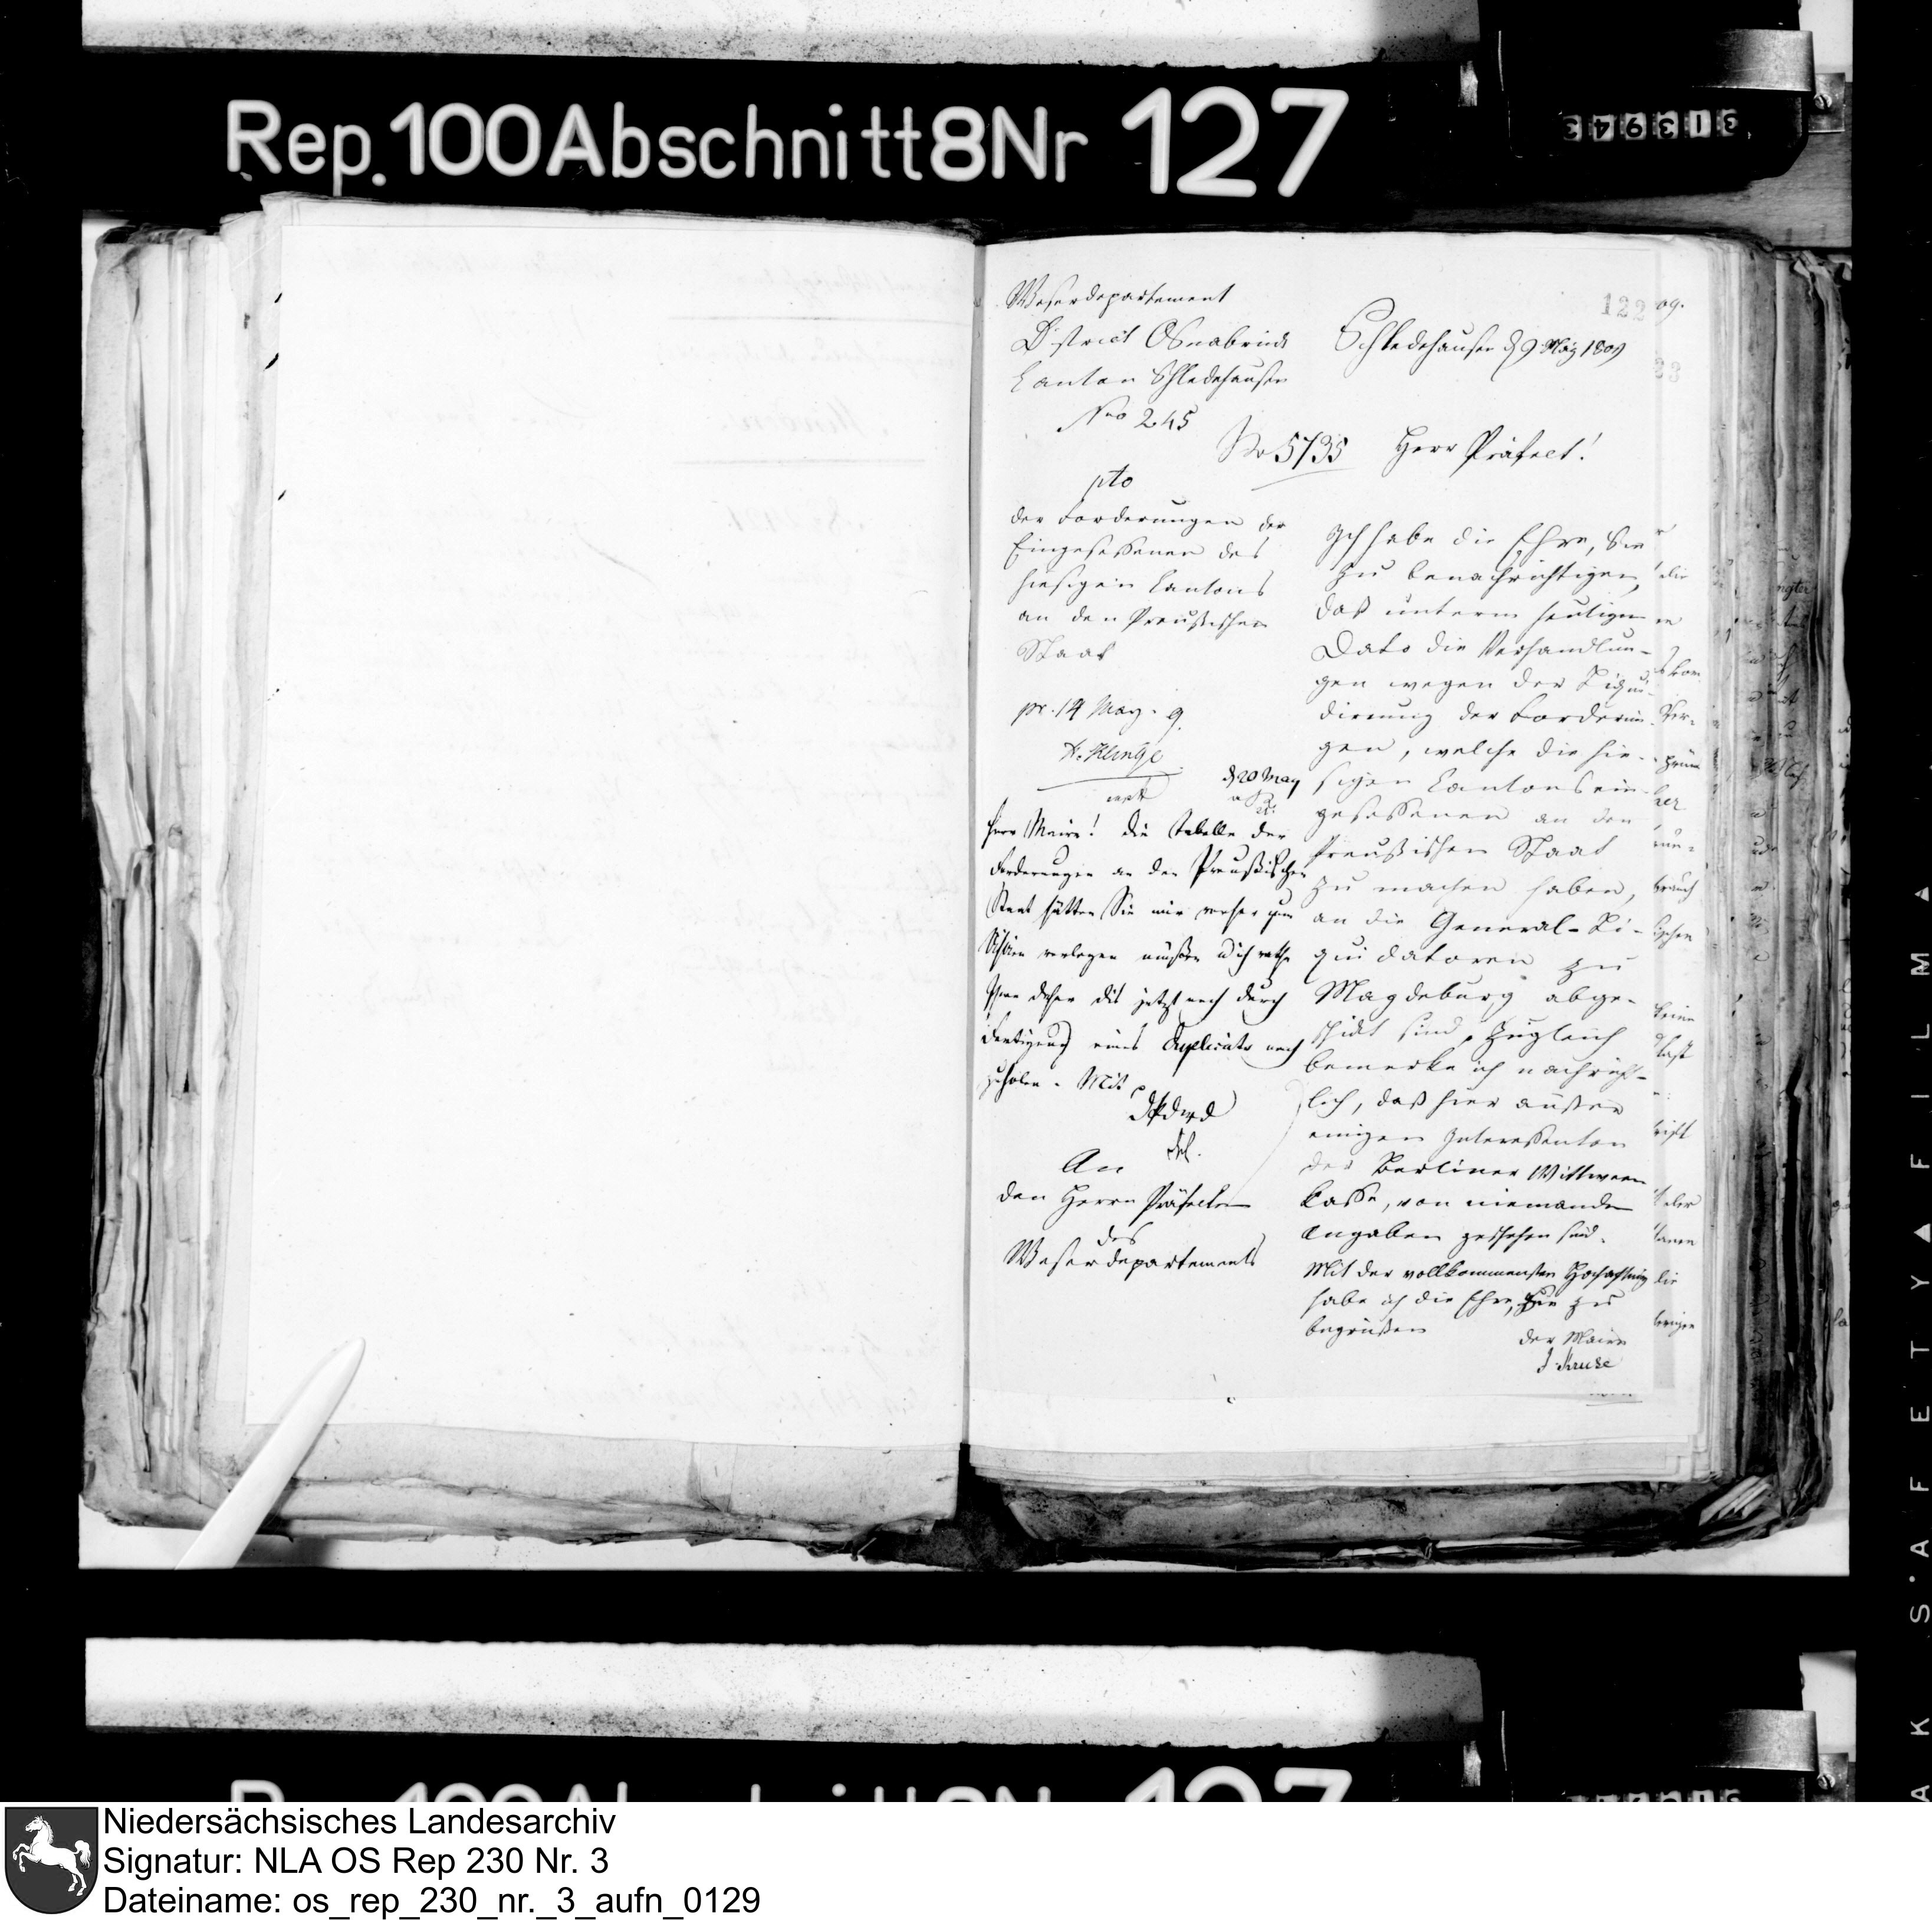 Rep. 100 Abschnitt 8 Nr 127
313943
122
Weserdepartement
District Osnabrück
Canton Schledehausen
Nro 245
Schledehausen d 9 May 1809
No 5735
Herr Präfect!
pto
der Forderungen der
Eingesessenen des
hiesigen Cantons
an den Preußischen
Staat
pr. 14 May. 9.
d 20 May
Herr Maire! die Tabelle der
Forderungen an den Preußischen
Staat hätten Sie mir vorher zum
verlegen müßen
Ihnen daher dis jetzt noch durch
Fertigung eines Duplicats nach
zuholen. Mit
An
den Herrn Präfecten
des
Weserdepartements
Ich habe die Ehre, Sie
zu benachrichtigen,
daß unterm heutigen
Dato die Verhandlun-
gen wegen der Liqui-
dirung der Forderun-
gen, welche die hie-
sigen Cantonsein-
gesessenen an den
Preußischen Staat
zu machen haben,
an die General-Li-
quidatoren zu
Magdeburg abge-
schickt sind, Zugleich
bemerke ich nachricht-
lich, daß hier außer
einigen Interessenten
der Berliner Wittwen
Casse, von niemanden
Angaben geschehen sind.
Mit der vollkommensten Hochachtung
habe ich die Ehre, Sie zu
begrüßen
der Maire
J. Kruse
SAFETY FILM
Niedersächsisches Landesarchiv
Signatur: NLA OS Rep 230 Nr. 3
Dateiname: os_rep_230_nr._3_aufn_0129